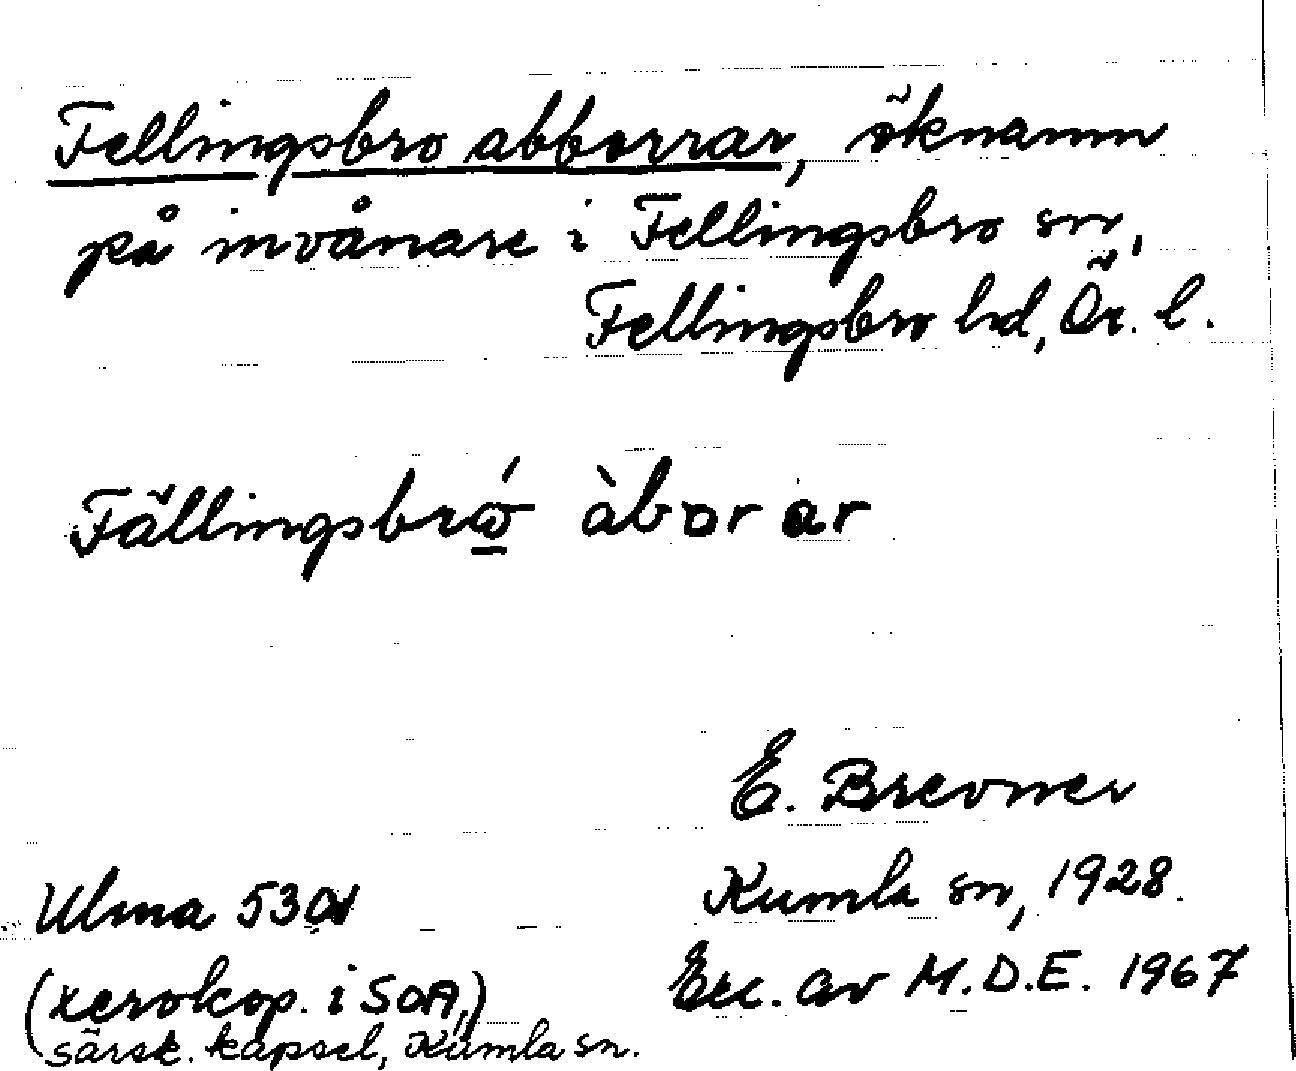 Fellingsbro abborrar, öknamn
på invånare i Fellingsbro sn,
Fellingsbro hd, Ör. l.
Fällingsbró àborar
E. Brevner
Kumla sn, 1928.
Exc. av M.D.E. 1967
Ulma
(xerokop. i SOA,)
särsk. kapsel, Kumla sn.